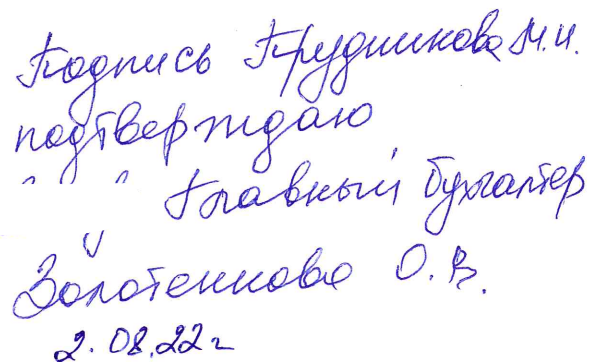 Подпись Прудникова М.И.
подтверждаю
Главный бухгалтер
Золотенкова О.В.
2.08.22г